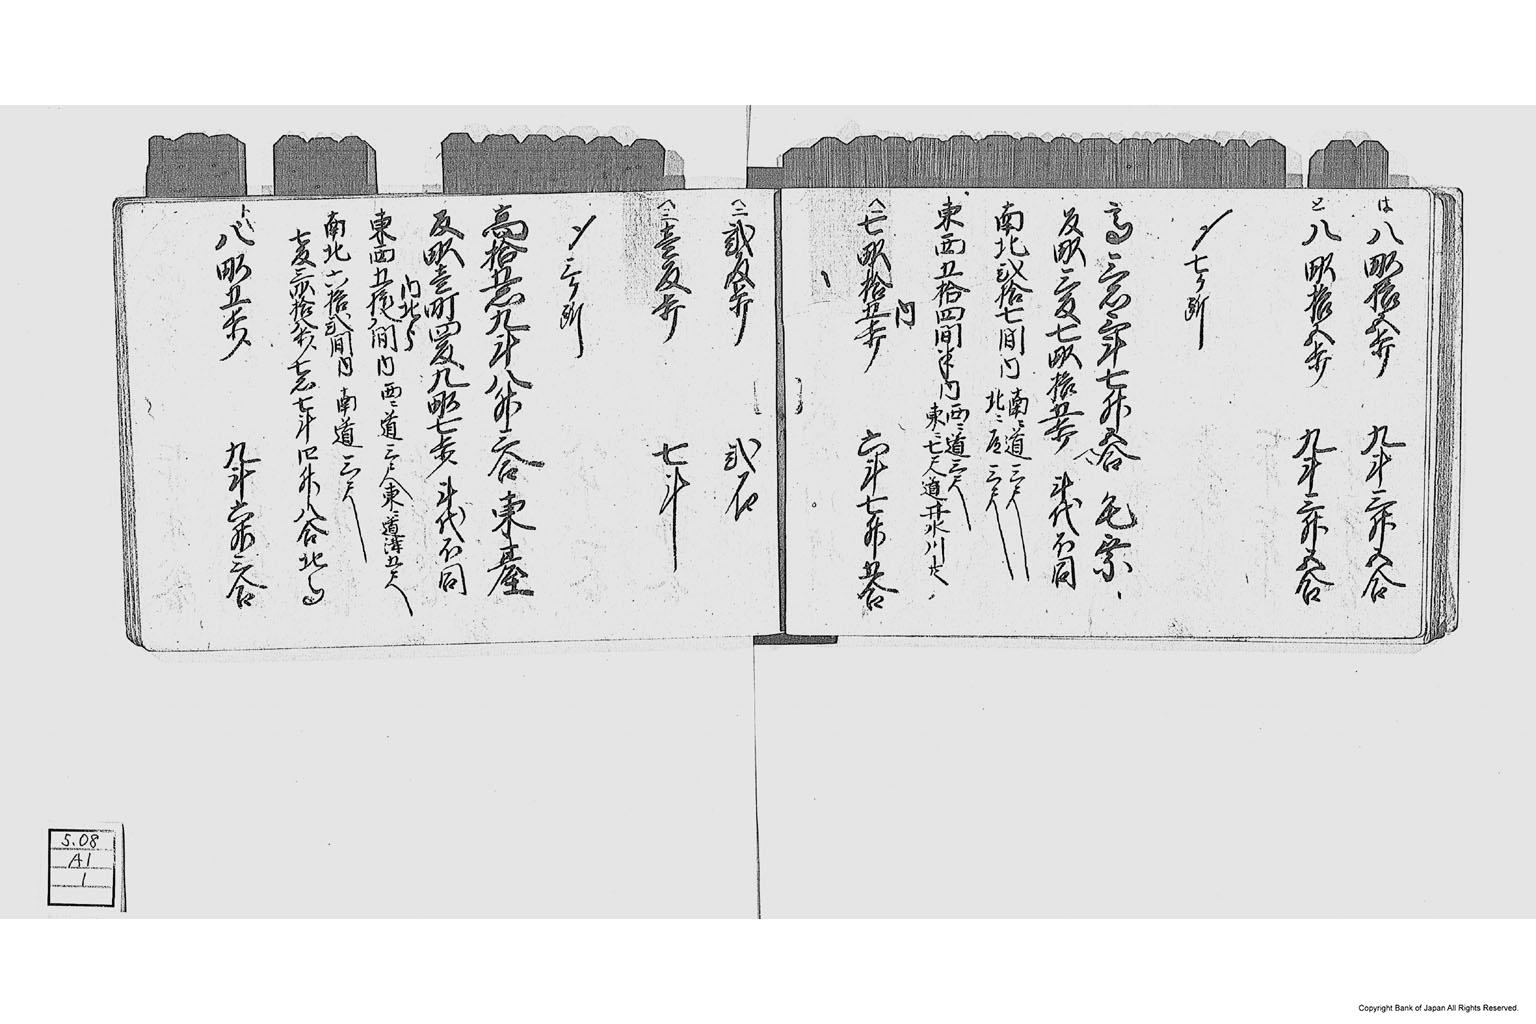 は 八畝拾五歩 九斗三升五合
と 八畝拾五歩 九斗三升五合
〆七ヶ所
高三石三斗七升五合
反畝三反七畝拾五歩 斗代不同
南北弐拾七間内 南ニ道三尺
北ニ 三尺
東西五拾四間半内 西ニ道三尺
東ニ七尺道井水川共
内
へ二 七畝拾五歩 六斗七升五合
へ二 弐反歩 弐石
へ三 壱反歩 七斗
〆三ヶ所
高拾五石九斗八升三合 東屋
反畝壱町四反九畝七歩 斗代不同
内北
東西五拾 間内 西ニ道三尺東ニ道溝五尺
南北六拾弐間内 南道三尺
七反三畝拾八歩 七石七斗四升八合北
八畝五歩 九斗六升三合
5.08
A1
1
Copyright Bank of Japan All Rights Reserved.